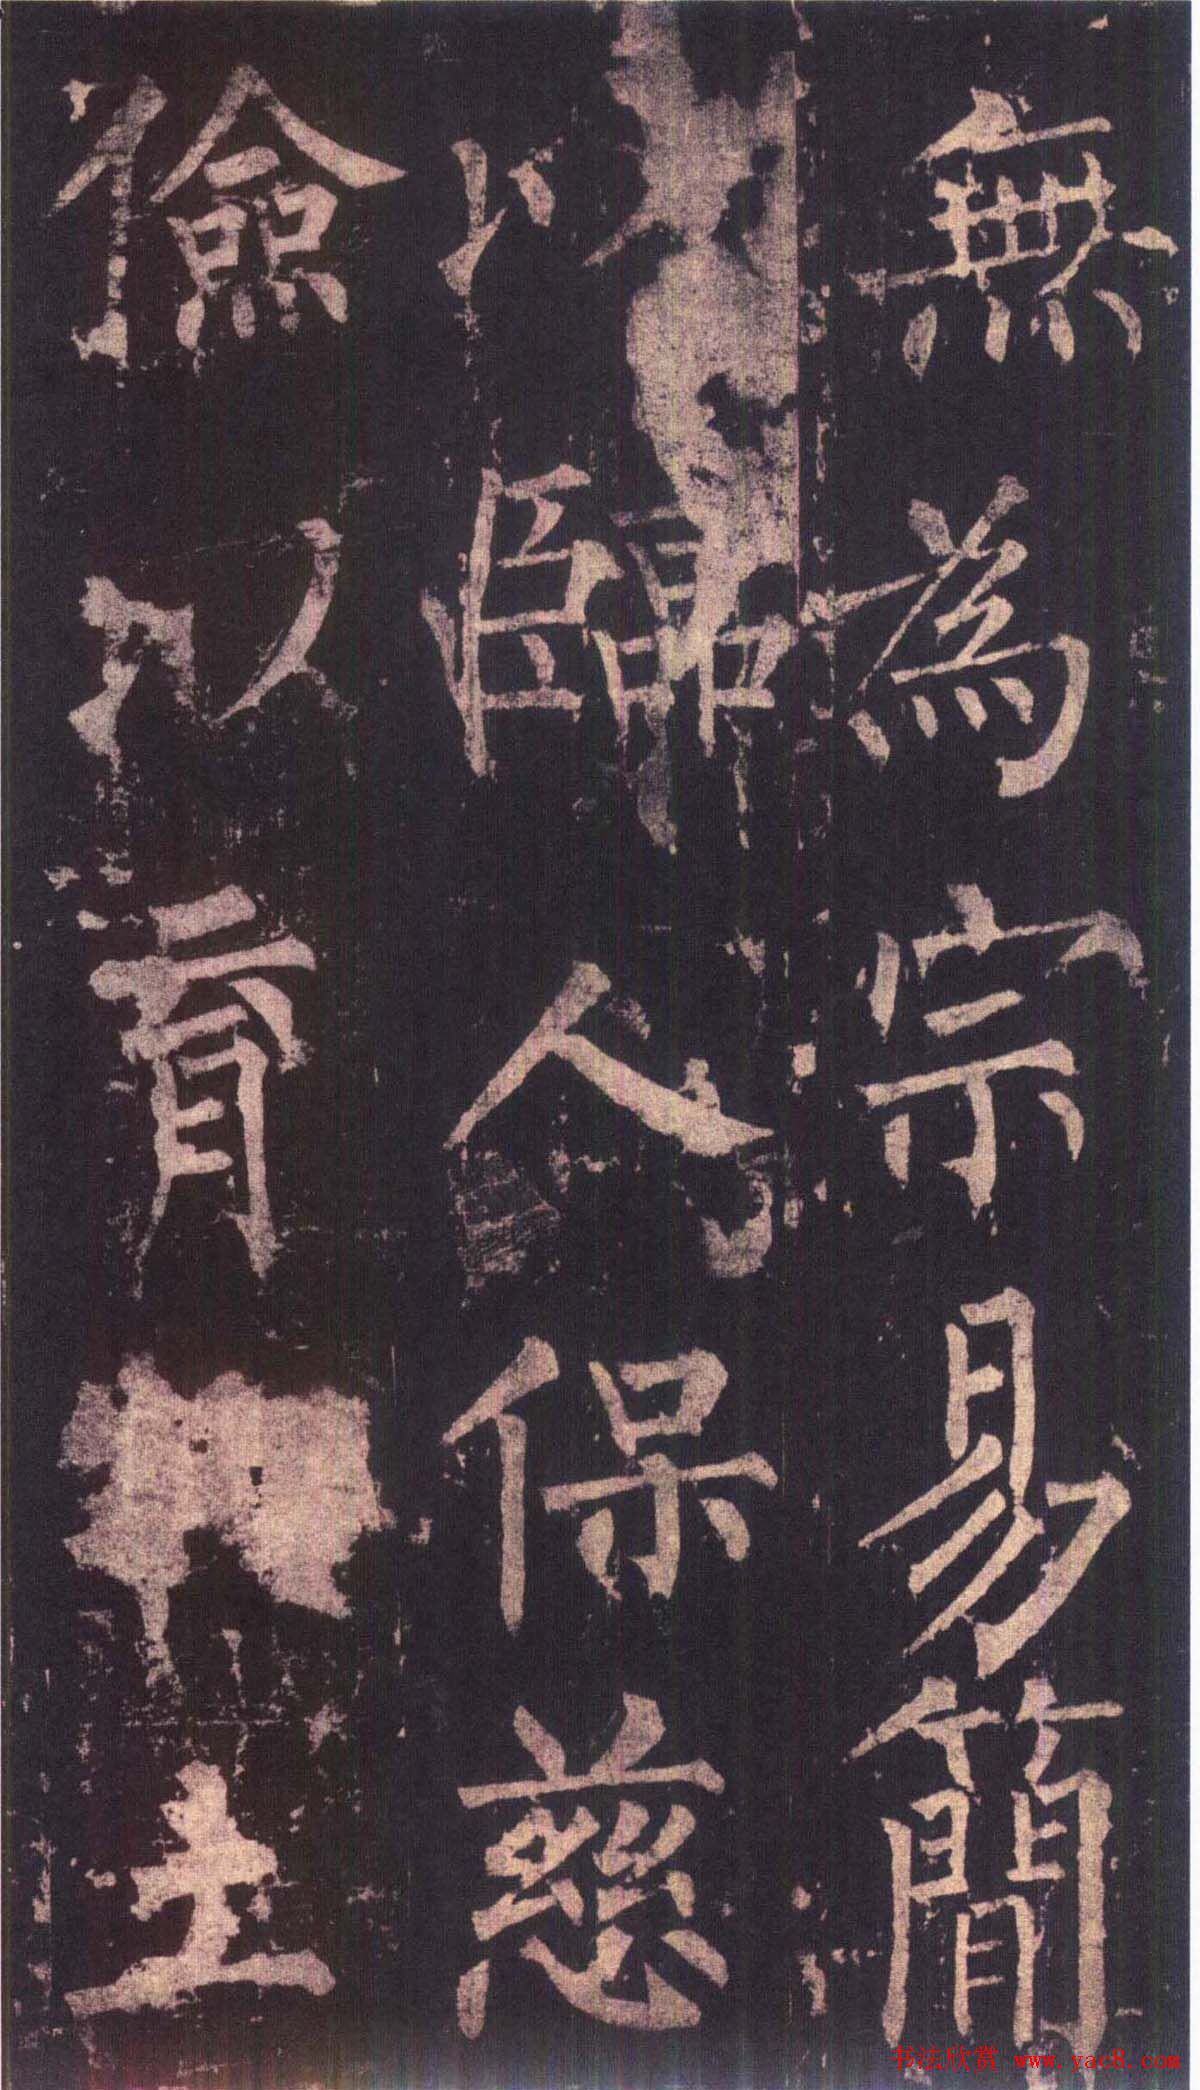 無為宗易簡
以臨人保慈
儉以育土
书法欣赏 www.yac8.com